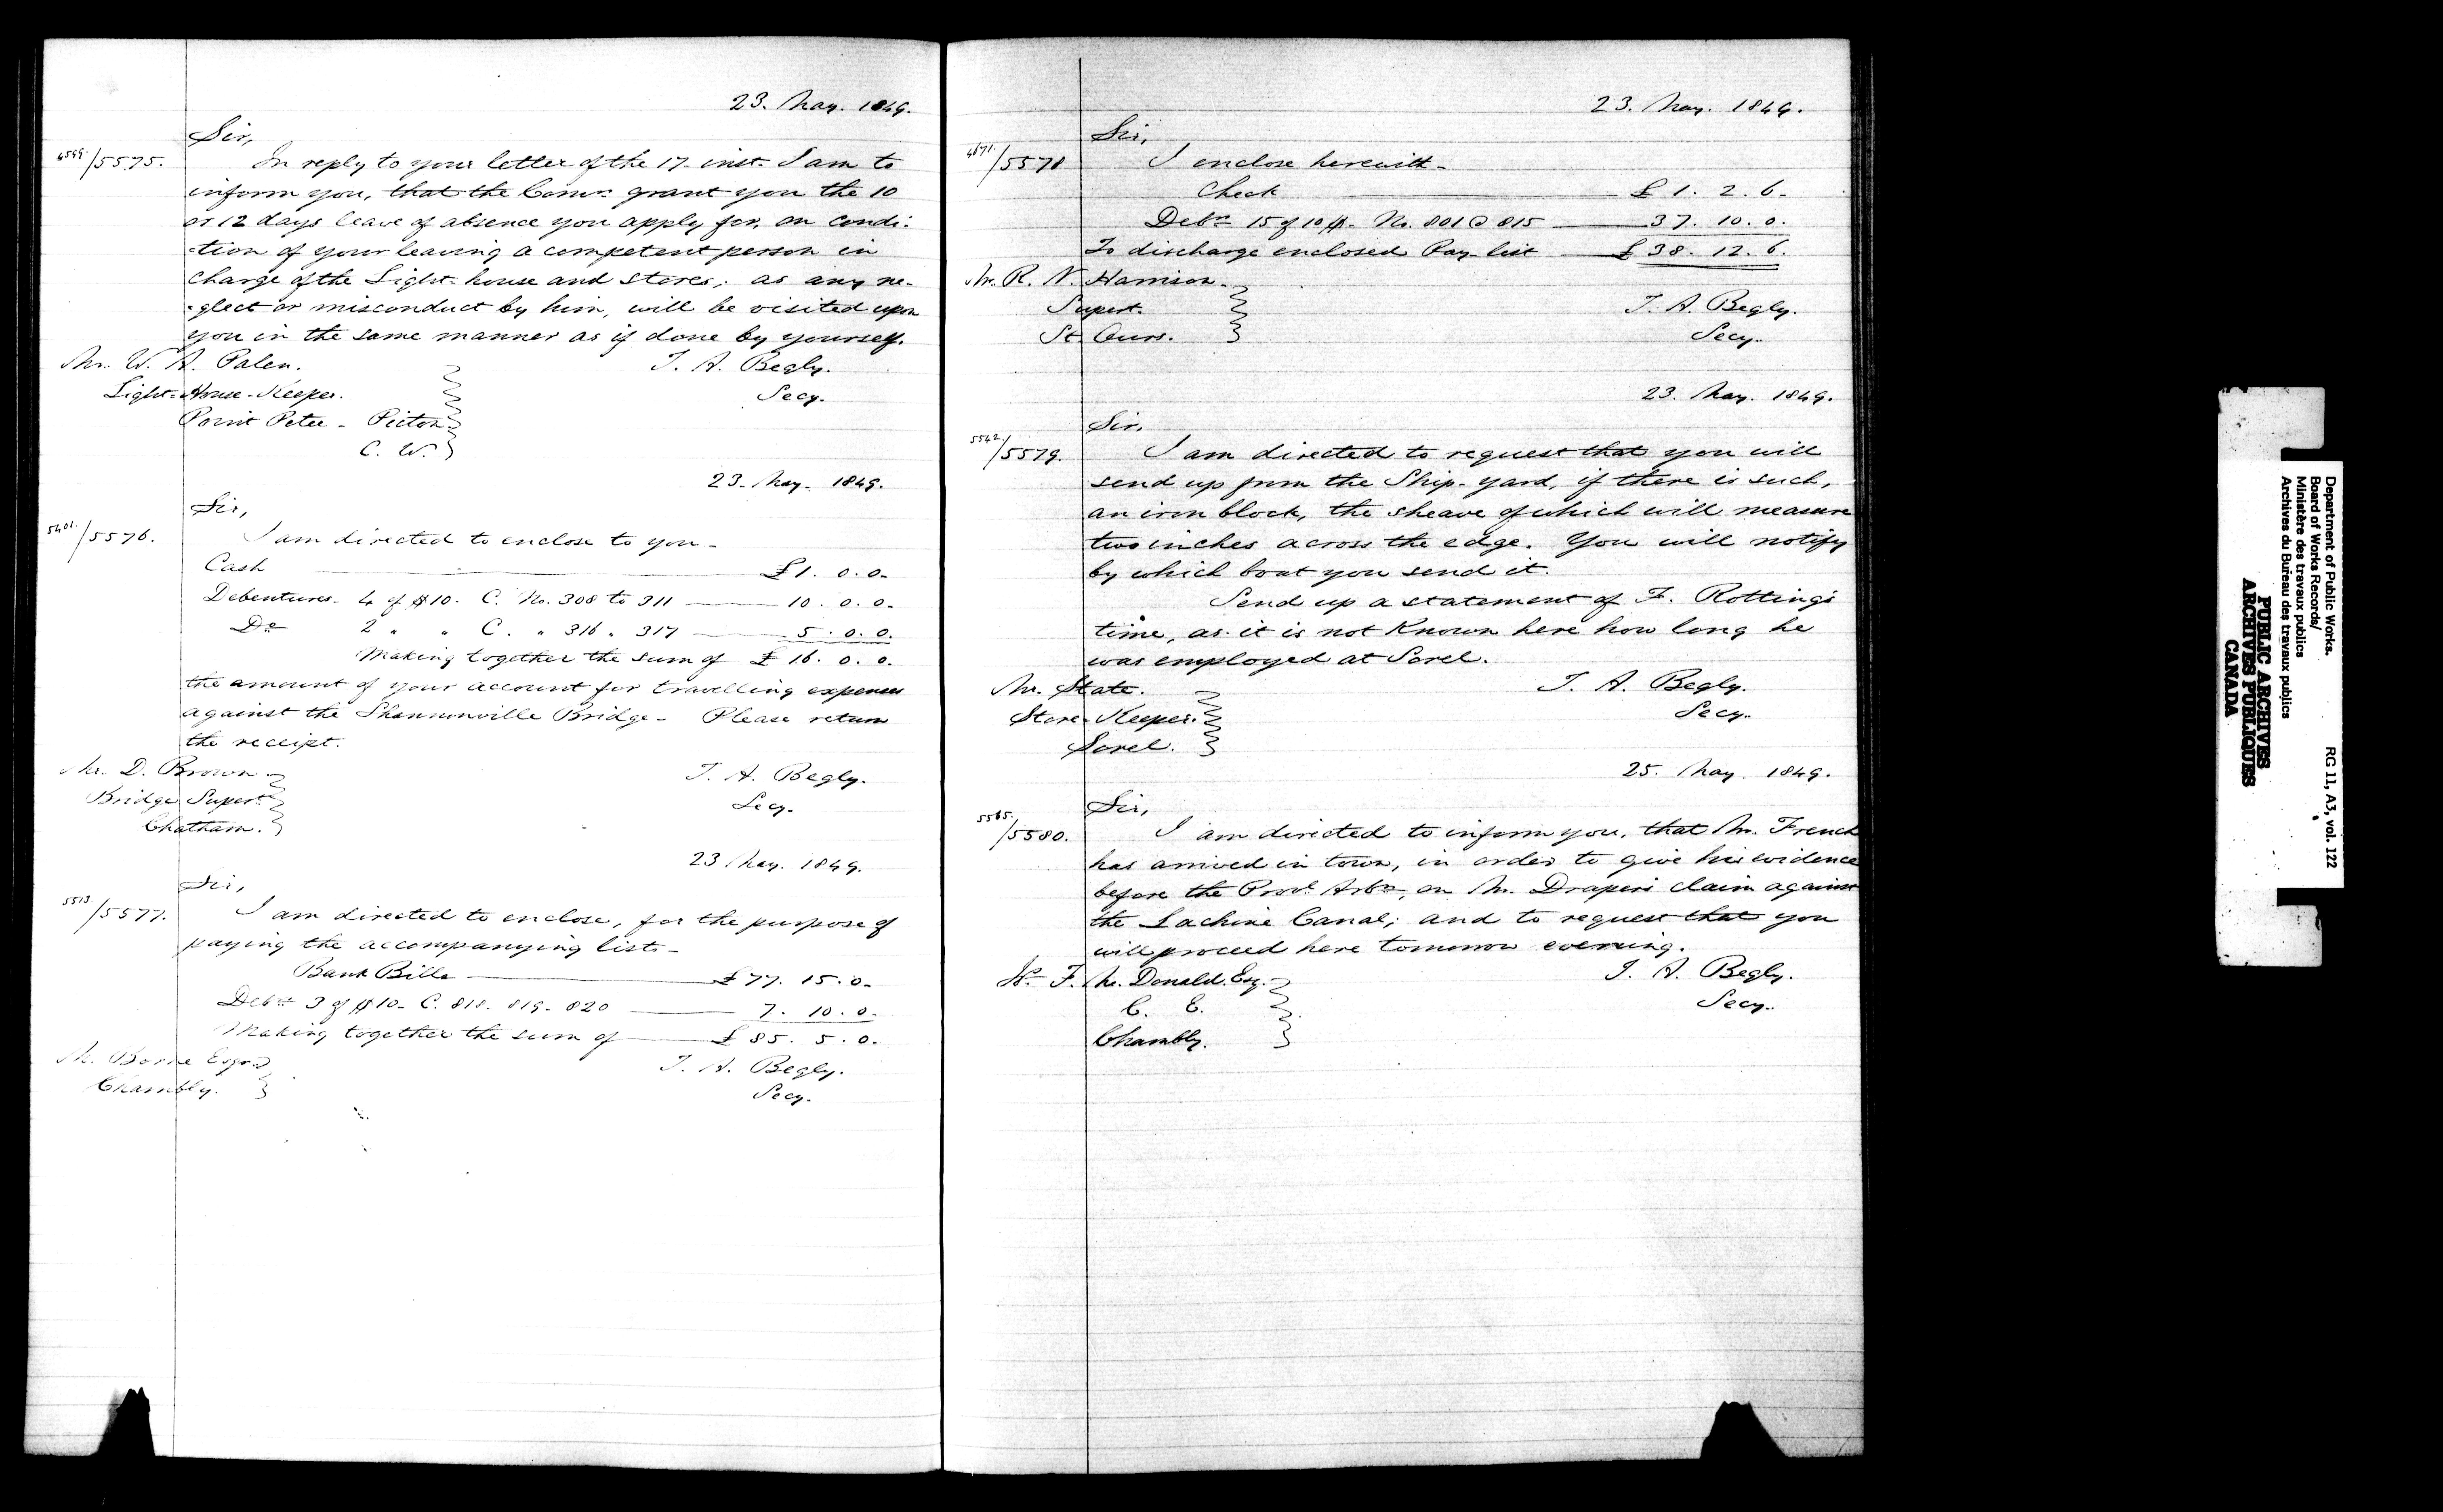 23. May. 1849.
Sir,
/5575.
In reply to your letter of the 17. inst. I am to
inform you, that the Comrs. grant you the 10
or 12 days leave of absence you apply for, on condi:
:tion of your leaving a competent person in
charge of the Light-house and stores; as any ne-
-glect or misconduct by him, will be visited upon
you in the same manner as if done by yourself.
Mr. W. A. Palen.
T. A. Begly.
Light-House-Keeper.
Secy.
Point Peter - Picton
C. W.
23. May. 1849.
Sir,
5401./5576.
I am directed to enclose to you -
Cash £1. 0. 0.
Debentures. 4 of $10. C. No. 308 to 311 10. 0. 0.
Do 2 " " C. " 316 " 317 5. 0. 0.
Making together the sum of £ 16. 0. 0.
the amount of your account for travelling expenses
against the Shannonville Bridge - Please return
the receipt.
Mr. D. Brown
T. A. Begly.
Bridge Supert.
Secy.
Chatham.
23 May. 1849.
Sir,
5513./5577.
I am directed to enclose, for the purpose of
paying the accompanying lists -
Bank Bills £77. 15. 0.
Debrs. 3 of $10. C. 818. 819. 820 7. 10. 0.
Making together the sum of £85. 5. 0.
Esqr.
T. A. Begly.
Chambly.
Secy.
23. May. 1849.
Sir,
4671./5578
I enclose herewith -
Check £ 1. 2. 6.
Debrs. 15 of 10 $. No. 801 @ 815 37. 10. 0.
To discharge enclosed Pay-list £ 38. 12. 6.
Mr. R. N. Harrison.
Supert.
T. A. Begly.
St. Ours.
Secy.
23. May. 1849.
Sir.
5542./5579.
I am directed to request that you will
send up from the Ship-yard, if there is such,
an iron block, the sheave of which will measure
two inches across the edge. You will notify
by which boat you send it.
Send up a statement of F. Rotting's
time, as it is not known here how long he
was employed at Sorel.
Mr. State.
T. A. Begly.
Store-Keeper.
Secy.
Sorel.
25. May. 1849.
Sir,
5565./5580.
I am directed to inform you, that Mr. French
has arrived in town, in order to give his evidence
before the Provl. Arbrs, on Mr. Draper's claim against
the Lachine Canal; and to request that you
will proceed here tomorrow evening.
F. Mc. Donald. Esq.
T. A. Begly.
C. E.
Secy.
Chambly.
Department of Public Works.
Board of Works Records/
Ministère des travaux publics
Archives du Bureau des travaux publics
RG 11, A3, vol. 122
PUBLIC ARCHIVES
ARCHIVES PUBLIQUES
CANADA